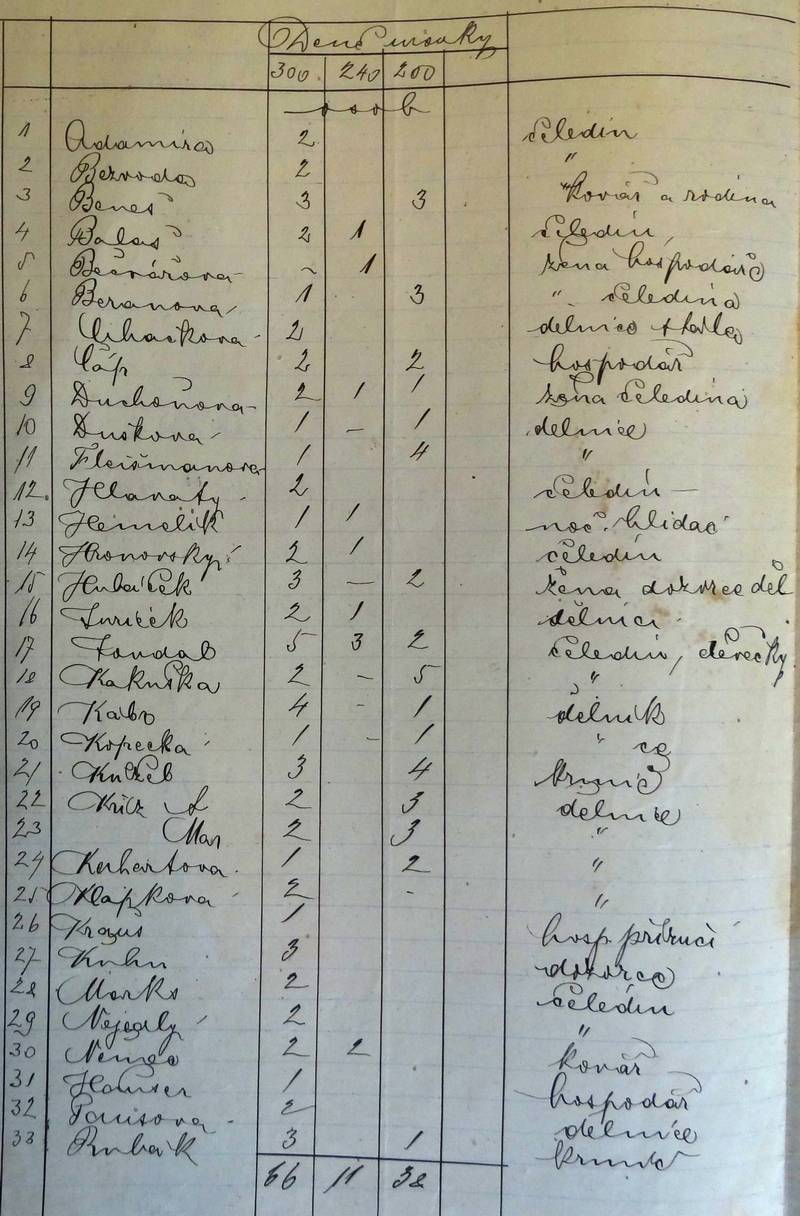 300 240 200
osob
1 Adamira 2 čeledín
2 Bezvoda 2 "
3 Beneš 3 3 kovář a rodina
4 Balaš 2 1 čeledín,
5 Bečvářova - ~ 1 žena hospodáře
6 Beranova 1 3 " čeledína
7 2 dělnice
8 Čáp 2 2 hospodář
9 Duchoňova - 2 1 1 žena čeledína
10 Duškova 1 - 1 dělnice
11 Fleišmanova 1 4 "
12. Hlavatý - 2 čeledín -
13 Hemelik 1 1 noč. hlídač
14 Hronovský 2 1 čeledín
15 Hubáček 3 - 2 žena dozorce děl
16 Juriček 2 1 dělnici
17 Jondal 5 3 2 čeledín, děvečky
18 Kakuška 2 - 5 "
19 Kabo 4 - 1 dělník
20 Kopecka 1 - 1 " ce
21 3 4 krmič
22 Kříž 2 3 dělnice
23 Mar 2 3 "
24 Kerhartova 1 2 "
25 Klapkova 2 - "
26 Kraus 1 hosp. příručí
27 Kuhn 3 dozorce
28 Marks 2 čeledín
29 Nejedlý 2 "
30 Nemec 2 2 kovář
31 Hauser 1 hospodář
32 Pausova - 2 dělnice
33 Rubak 3 1 krmič
66 11 38